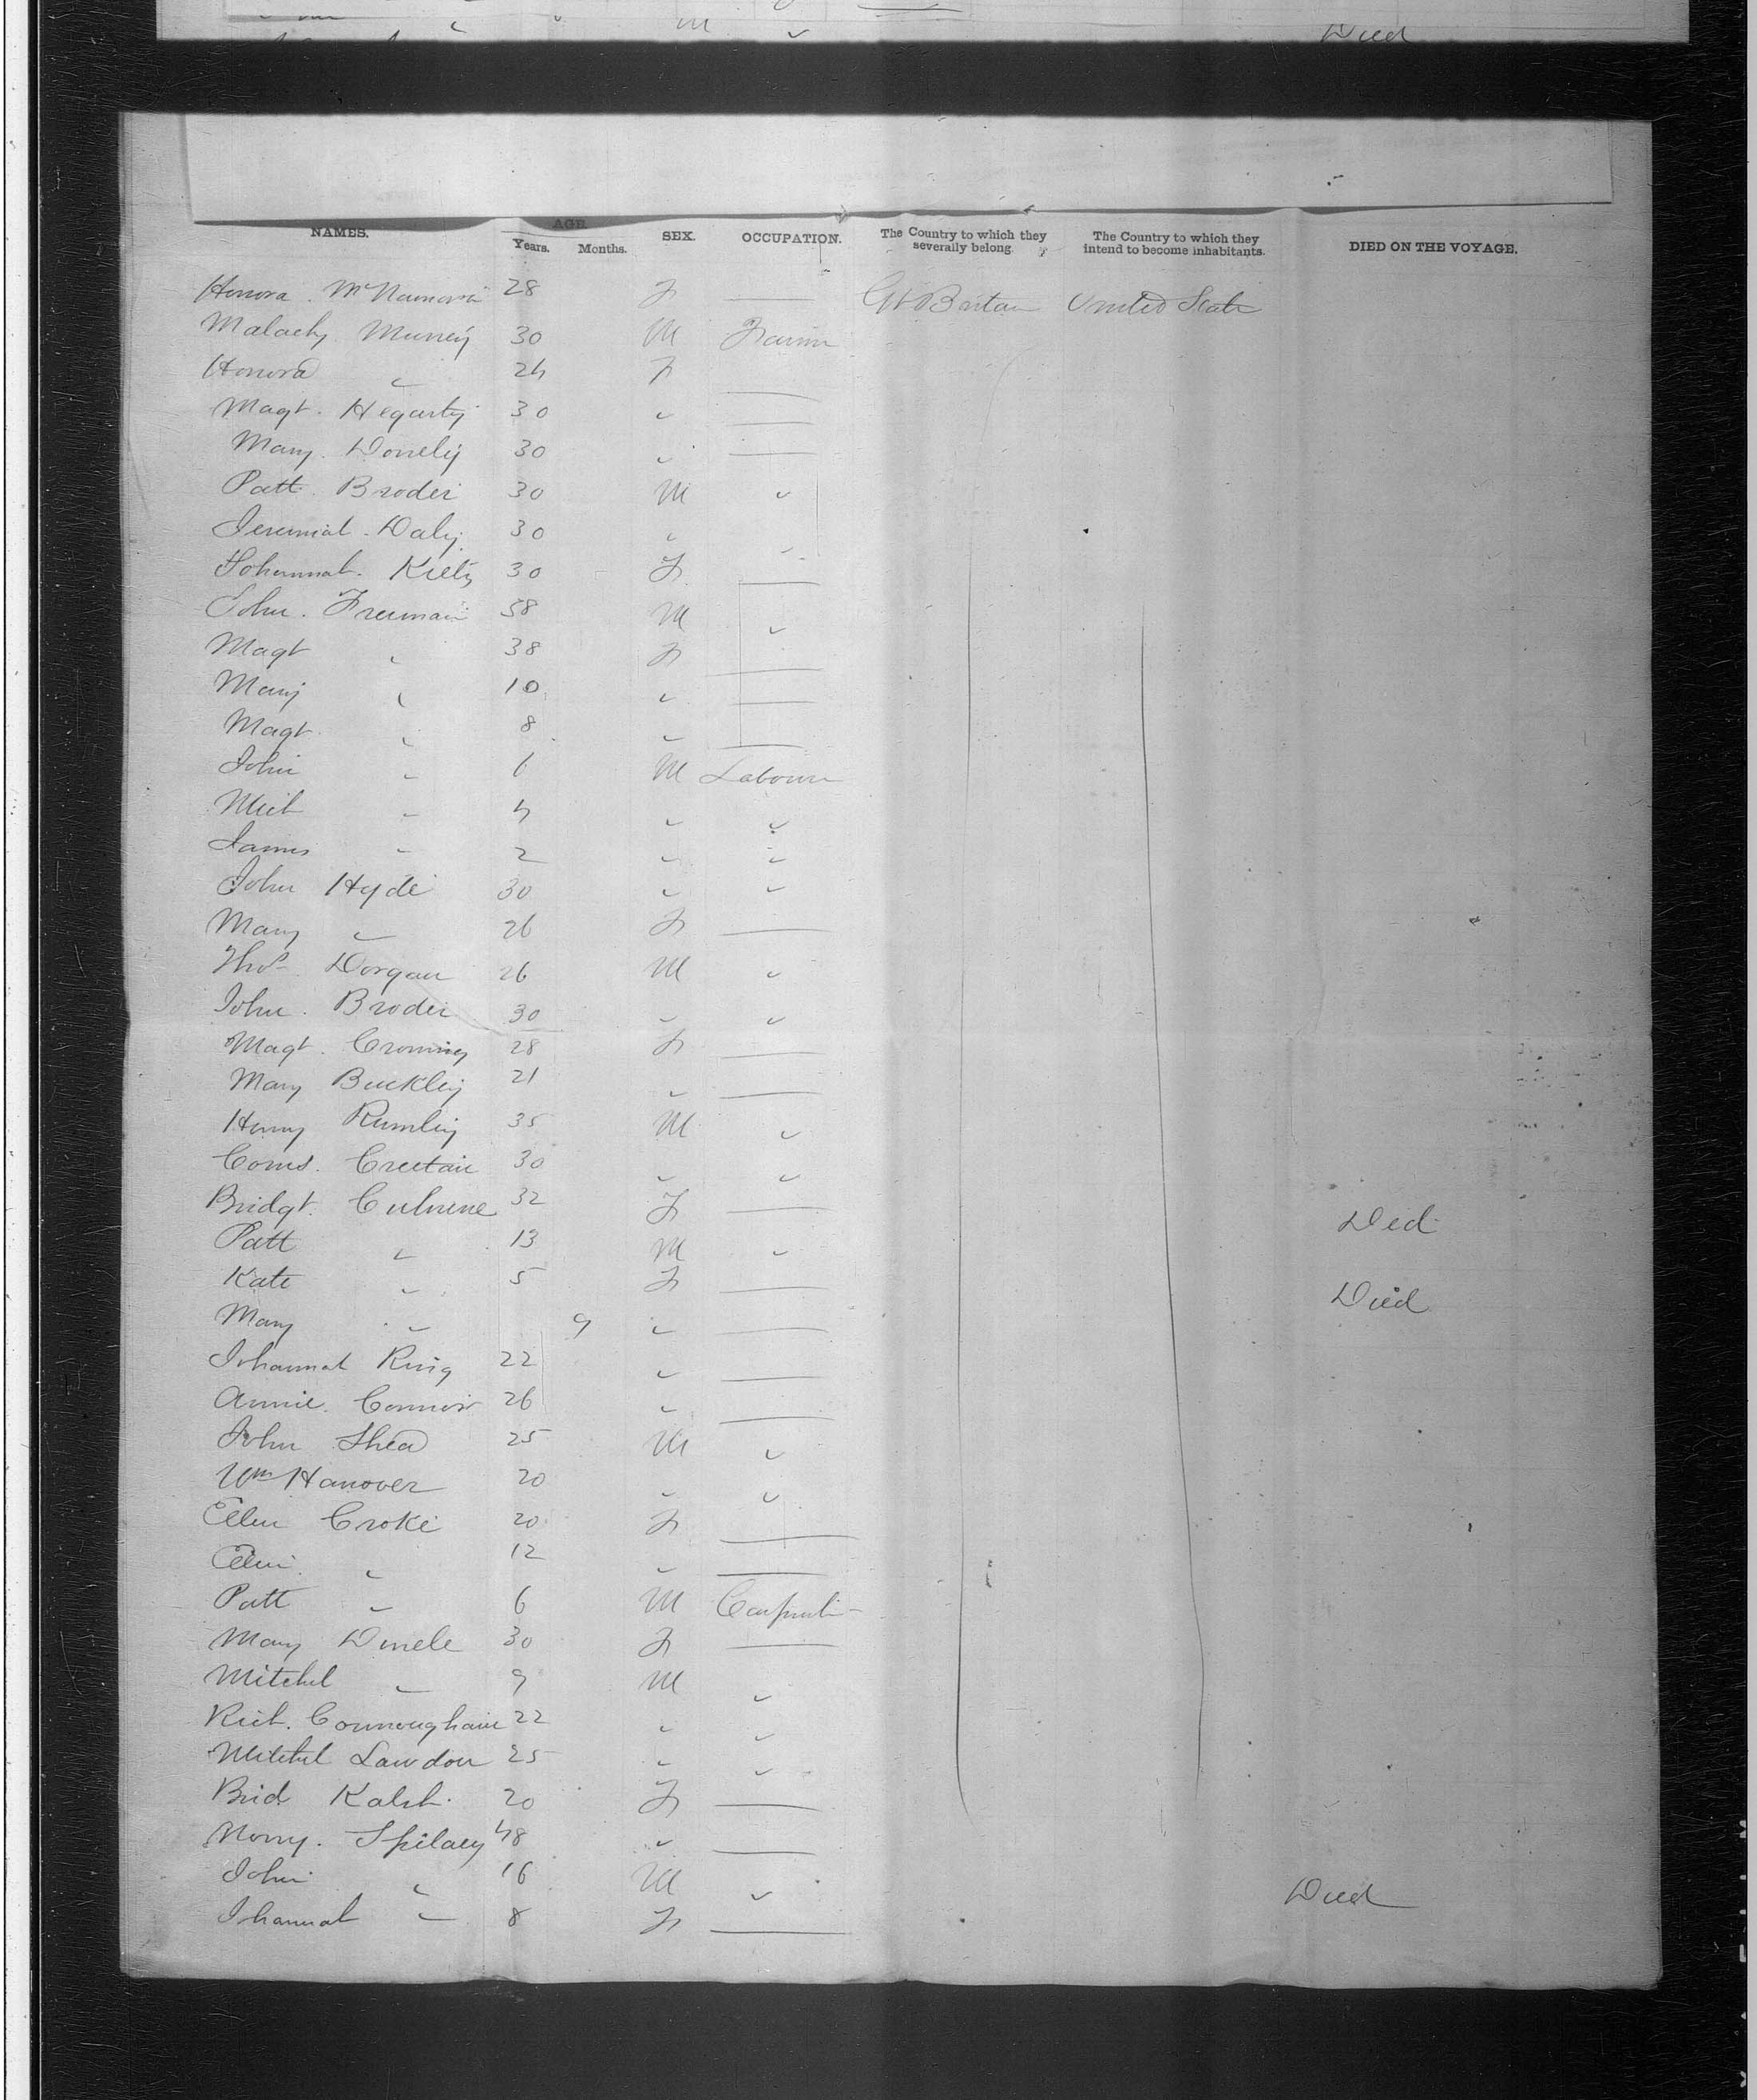 Died
NAMES. AGE. Years. Months. SEX. OCCUPATION. The Country to which they severally belong. The Country to which they intend to become inhabitants. DIED ON THE VOYAGE.
Honora . McNamara 28 F — Gt Britan United State
Malachy Murrey 30 M Farmr
Honora " 24 F —
Magt. Hegarty 30 " —
Mary. Donely 30 " —
Patt. Broder 30 M "
Jeremiah . Daly 30 " "
Johannah. Kielty 30 F —
John . Freeman 58 M "
Magt " 38 F —
Mary " 10 " —
Magt " 8 " —
John " 6 M Labourr
Mich " 4 " "
James " 2 " "
John Hyde 30 " "
Mary " 26 F —
Thos Dorgan 26 M "
John . Broder 30 " "
Magt. Croniny 28 F —
Mary Buckley 21 " —
Henry Rumley 35 M "
Corns. Creetan 30 " "
Bridgt. 32 F — Died
Patt " 13 M "
Kate " 5 F — Died
Mary " 9 " —
Johannah Ring 22 " —
Annie. Connor 26 " —
John Shea 25 M "
Wm Hanover 20 " "
Ellen Croke 20 F —
Ellen " 12 " —
Patt " 6 M Carpenter
Mary Dinele 30 F —
Mitchel " 9 M "
Rich. Connougham 22 " "
Mitchel Lawdon 25 " "
Brid Kalsh. 20 F —
Norry. Spilacy 48 " —
John " 16 M " Died
Johannah " 8 F —